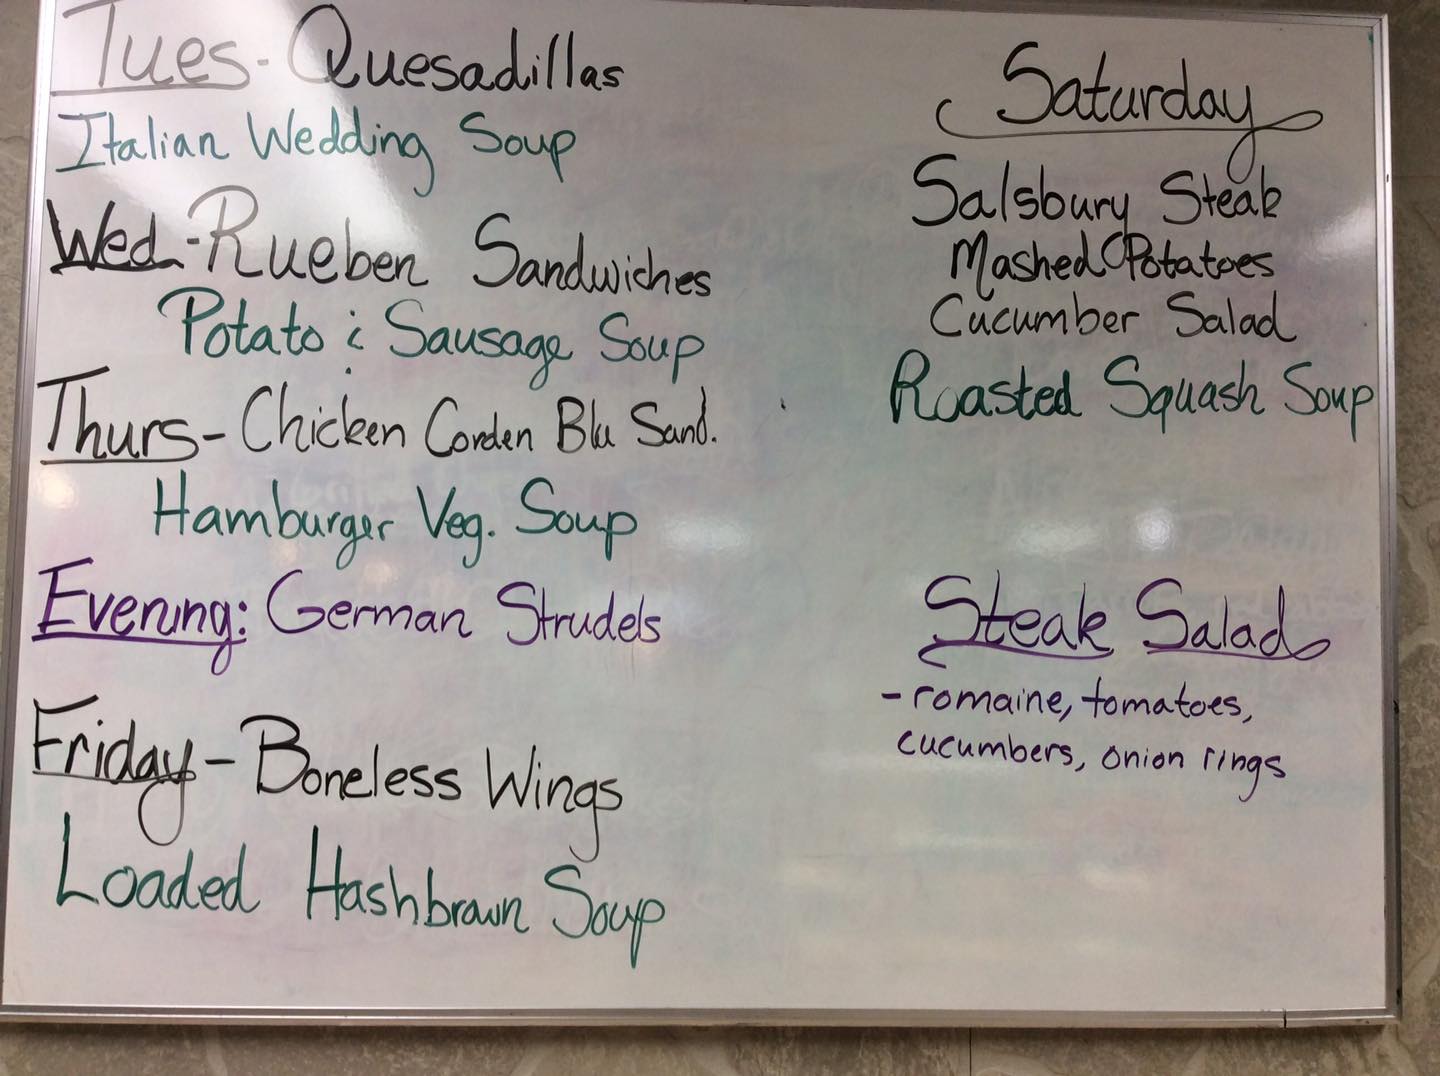 Tues - Quesadillas
Italian Wedding Soup
Wed - Rueben Sandwiches
Potato & Sausage Soup
Thurs - Chicken Corden Blu Sand.
Hamburger Veg. Soup
Evening: German Strudels
Friday - Boneless Wings
Loaded Hashbrown Soup
Saturday
Salsbury Steak
Mashed Potatoes
Cucumber Salad
Roasted Squash Soup
Steak Salad
- romaine, tomatoes,
cucumbers, onion rings